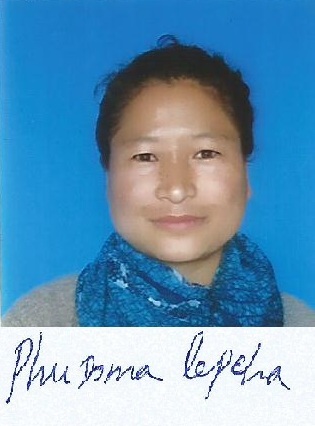 Phuzoma lepcha